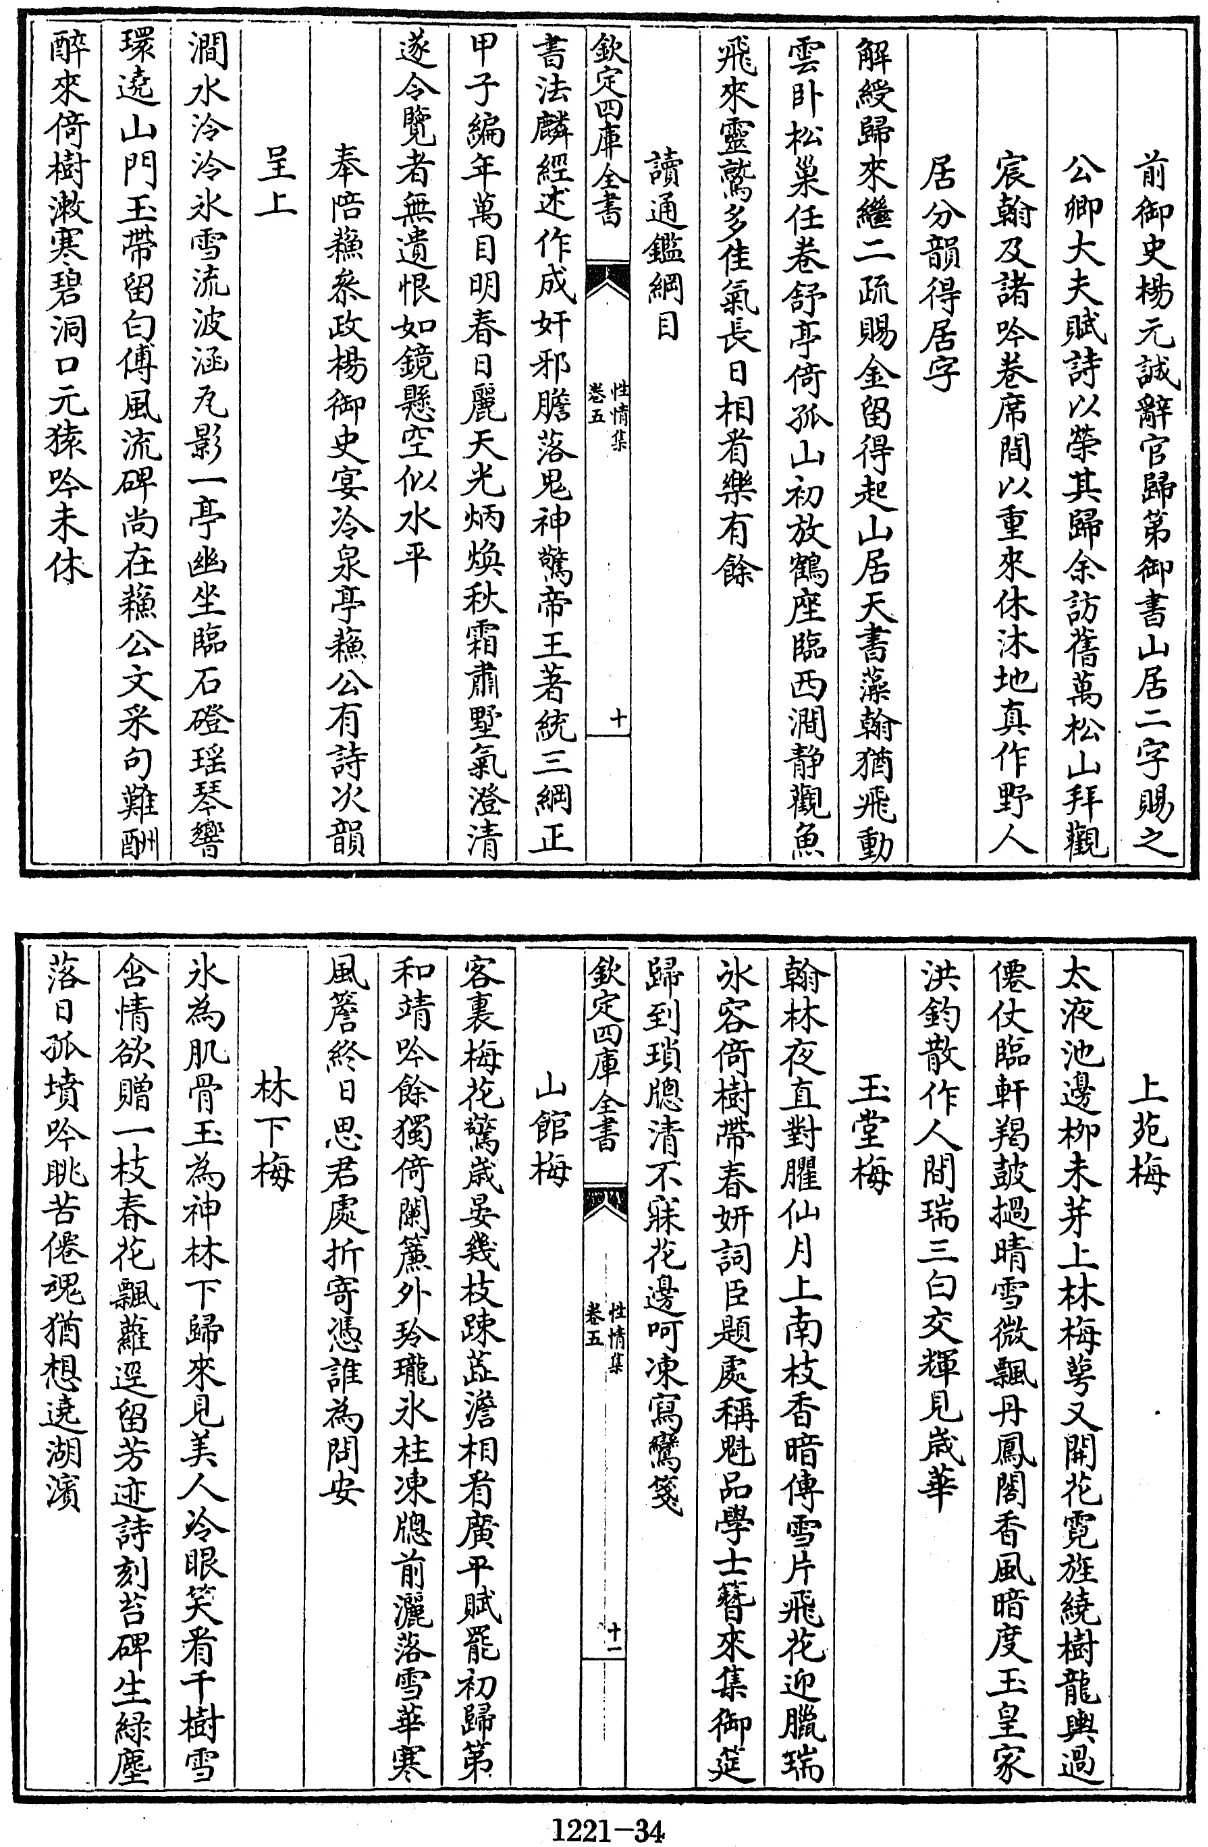 前御史楊元誠辭官歸第御書山居二字賜之
公卿大夫賦詩以榮其歸余訪舊萬松山拜觀
宸翰及諸吟卷席間以重來休沐地真作野人
居分韻得居字
解綬歸來繼二疏賜金留得起山居天書藻翰猶飛動
雲卧松巢任卷舒亭倚孤山初放鶴座臨西澗静觀魚
飛來靈鷲多佳氣長日相看樂有餘
讀通鑑綱目
欽定四庫全書
性情集
卷五
十
書法麟經述作成奸邪膽落鬼神驚帝王著統三綱正
甲子編年萬目明春日麗天光炳煥秋霜肅墅氣澄清
遂令覽者無遺恨如鏡懸空似水平
奉陪蘓叅政楊御史宴冷泉亭蘓公有詩次韻
呈上
澗水泠泠氷雪流波涵九影一亭幽坐臨石磴瑶琴響
環遶山門玉帶留白傅風流碑尚在蘓公文采句難酬
醉來倚樹漱寒碧洞口元猿吟未休
上苑梅
太液池邊柳未芽上林梅萼又開花霓旌繞樹龍輿過
僊仗臨軒羯鼓撾晴雪微飄丹鳳閣香風暗度玉皇家
洪鈞散作人間瑞三白交輝見歲華
玉堂梅
翰林夜直對臞仙月上南枝香暗傳雪片飛花迎臘瑞
氷容倚樹帶春妍詞臣題處稱魁品學士簪來集御筵
歸到瑣牕清不寐花邊呵凍寫鸞箋
欽定四庫全書
性情集
卷五
十一
山館梅
客裏梅花驚歲晏幾枝踈蕋澹相看廣平賦罷初歸第
和靖吟餘獨倚闌簾外玲瓏氷柱凍牕前灑落雪華寒
風簷終日思君處折寄憑誰為問安
林下梅
氷為肌骨玉為神林下歸來見美人冷眼笑看千樹雪
含情欲贈一枝春花飄蘿逕留芳迹詩刻苔碑生緑塵
落日孤墳吟眺苦僊魂猶想遶湖濱
1221-34